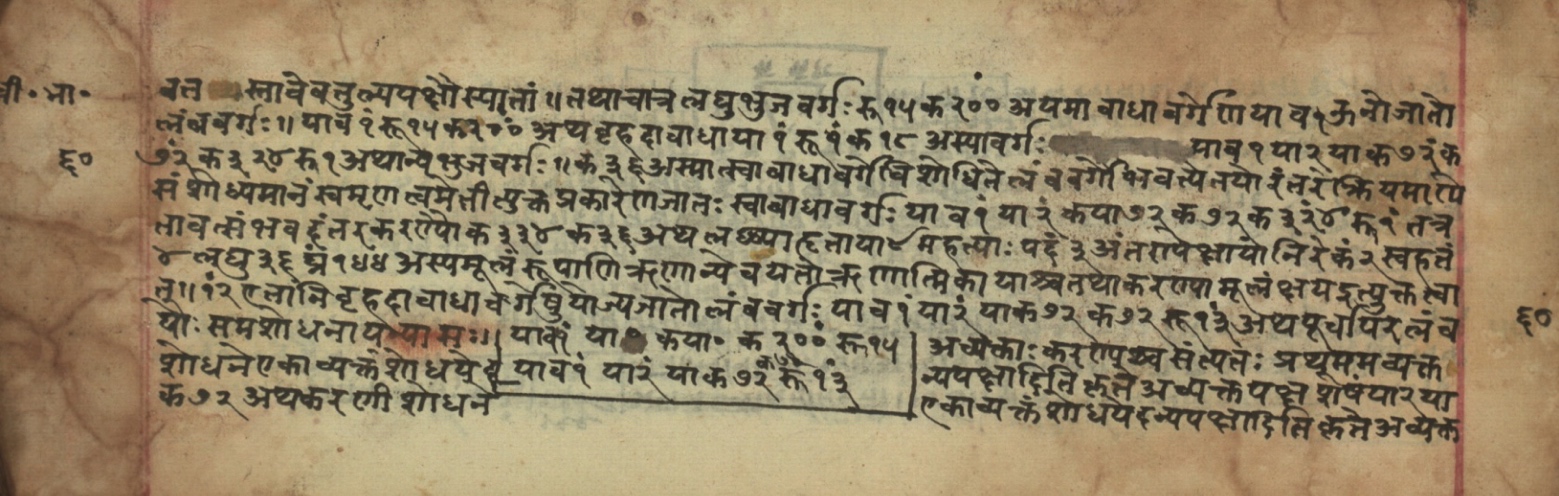 वी॰ भा॰
वत स्तावेव तुल्यपक्षौ स्यातां ॥ तथा चात्र लघुभुजवर्गः रू १५ क २०॑० अयमाबाधावर्गेण याव १ ऊनो जातो
लंबवर्गः ॥ याव॑ १ रू १५ क २०॑० अथ बृहदाबाधा या १॑ रू १॑ क १८ अस्या वर्गः याव १ या २ याक ७२॑ क
६०
७२॑ क ३२४ रू १ अथान्यभुजवर्गः ॥ क ३६ अस्मात्स्वाबाधावर्गे विशोधिते लंबवर्गो भवत्येतयोरंतरे क्रियमाणे
संशोध्यमानं स्वमृणत्वमेतीत्युक्तप्रकारेण जातः स्वाबाधावर्गः याव १॑ या २॑ कया ७२ क ७२ क ३२॑४ रू १॑ तत्र
तावत्संभवदंतरकरण्यौ क ३३४ क ३६ अथ लघ्व्याहृताया ४ महत्याः पदं ३ अंतरापेक्षायां निरेकं २ स्वहतं
४ लघु ३६ घ्नं १४४ अस्य मूलं रूपाणि ऋणान्येव यतो ऋणात्मिकायाश्च तथा करण्या मूलं क्षय इत्युक्तत्वा
त् ॥ १॑२ एतानि बृहदाबाधावर्गेषु योज्य जातो लंबवर्गः याव १॑ या २॑ याक ७२ क ७२ रू १॑३ अथ पूर्वापरलंब
६०
योः समशोधनाय न्यासः ॥ याकं या ॰ कया ॰ क २०॑० रू १५
शोधने एकाव्यक्तं शोधये याव १॑ या २॑ याक ७२ क ७२ रू १॑३
क ७२ अथ करणी शोधने
अव्यक्ताः करण्यश्च संत्यतः प्रथममव्यक्त
न्यपक्षादिति कृते अव्यक्तपक्ष शेषं या २ या
एकाव्यक्तं शोधयेदन्यपक्षादिति कृते अव्यक्त